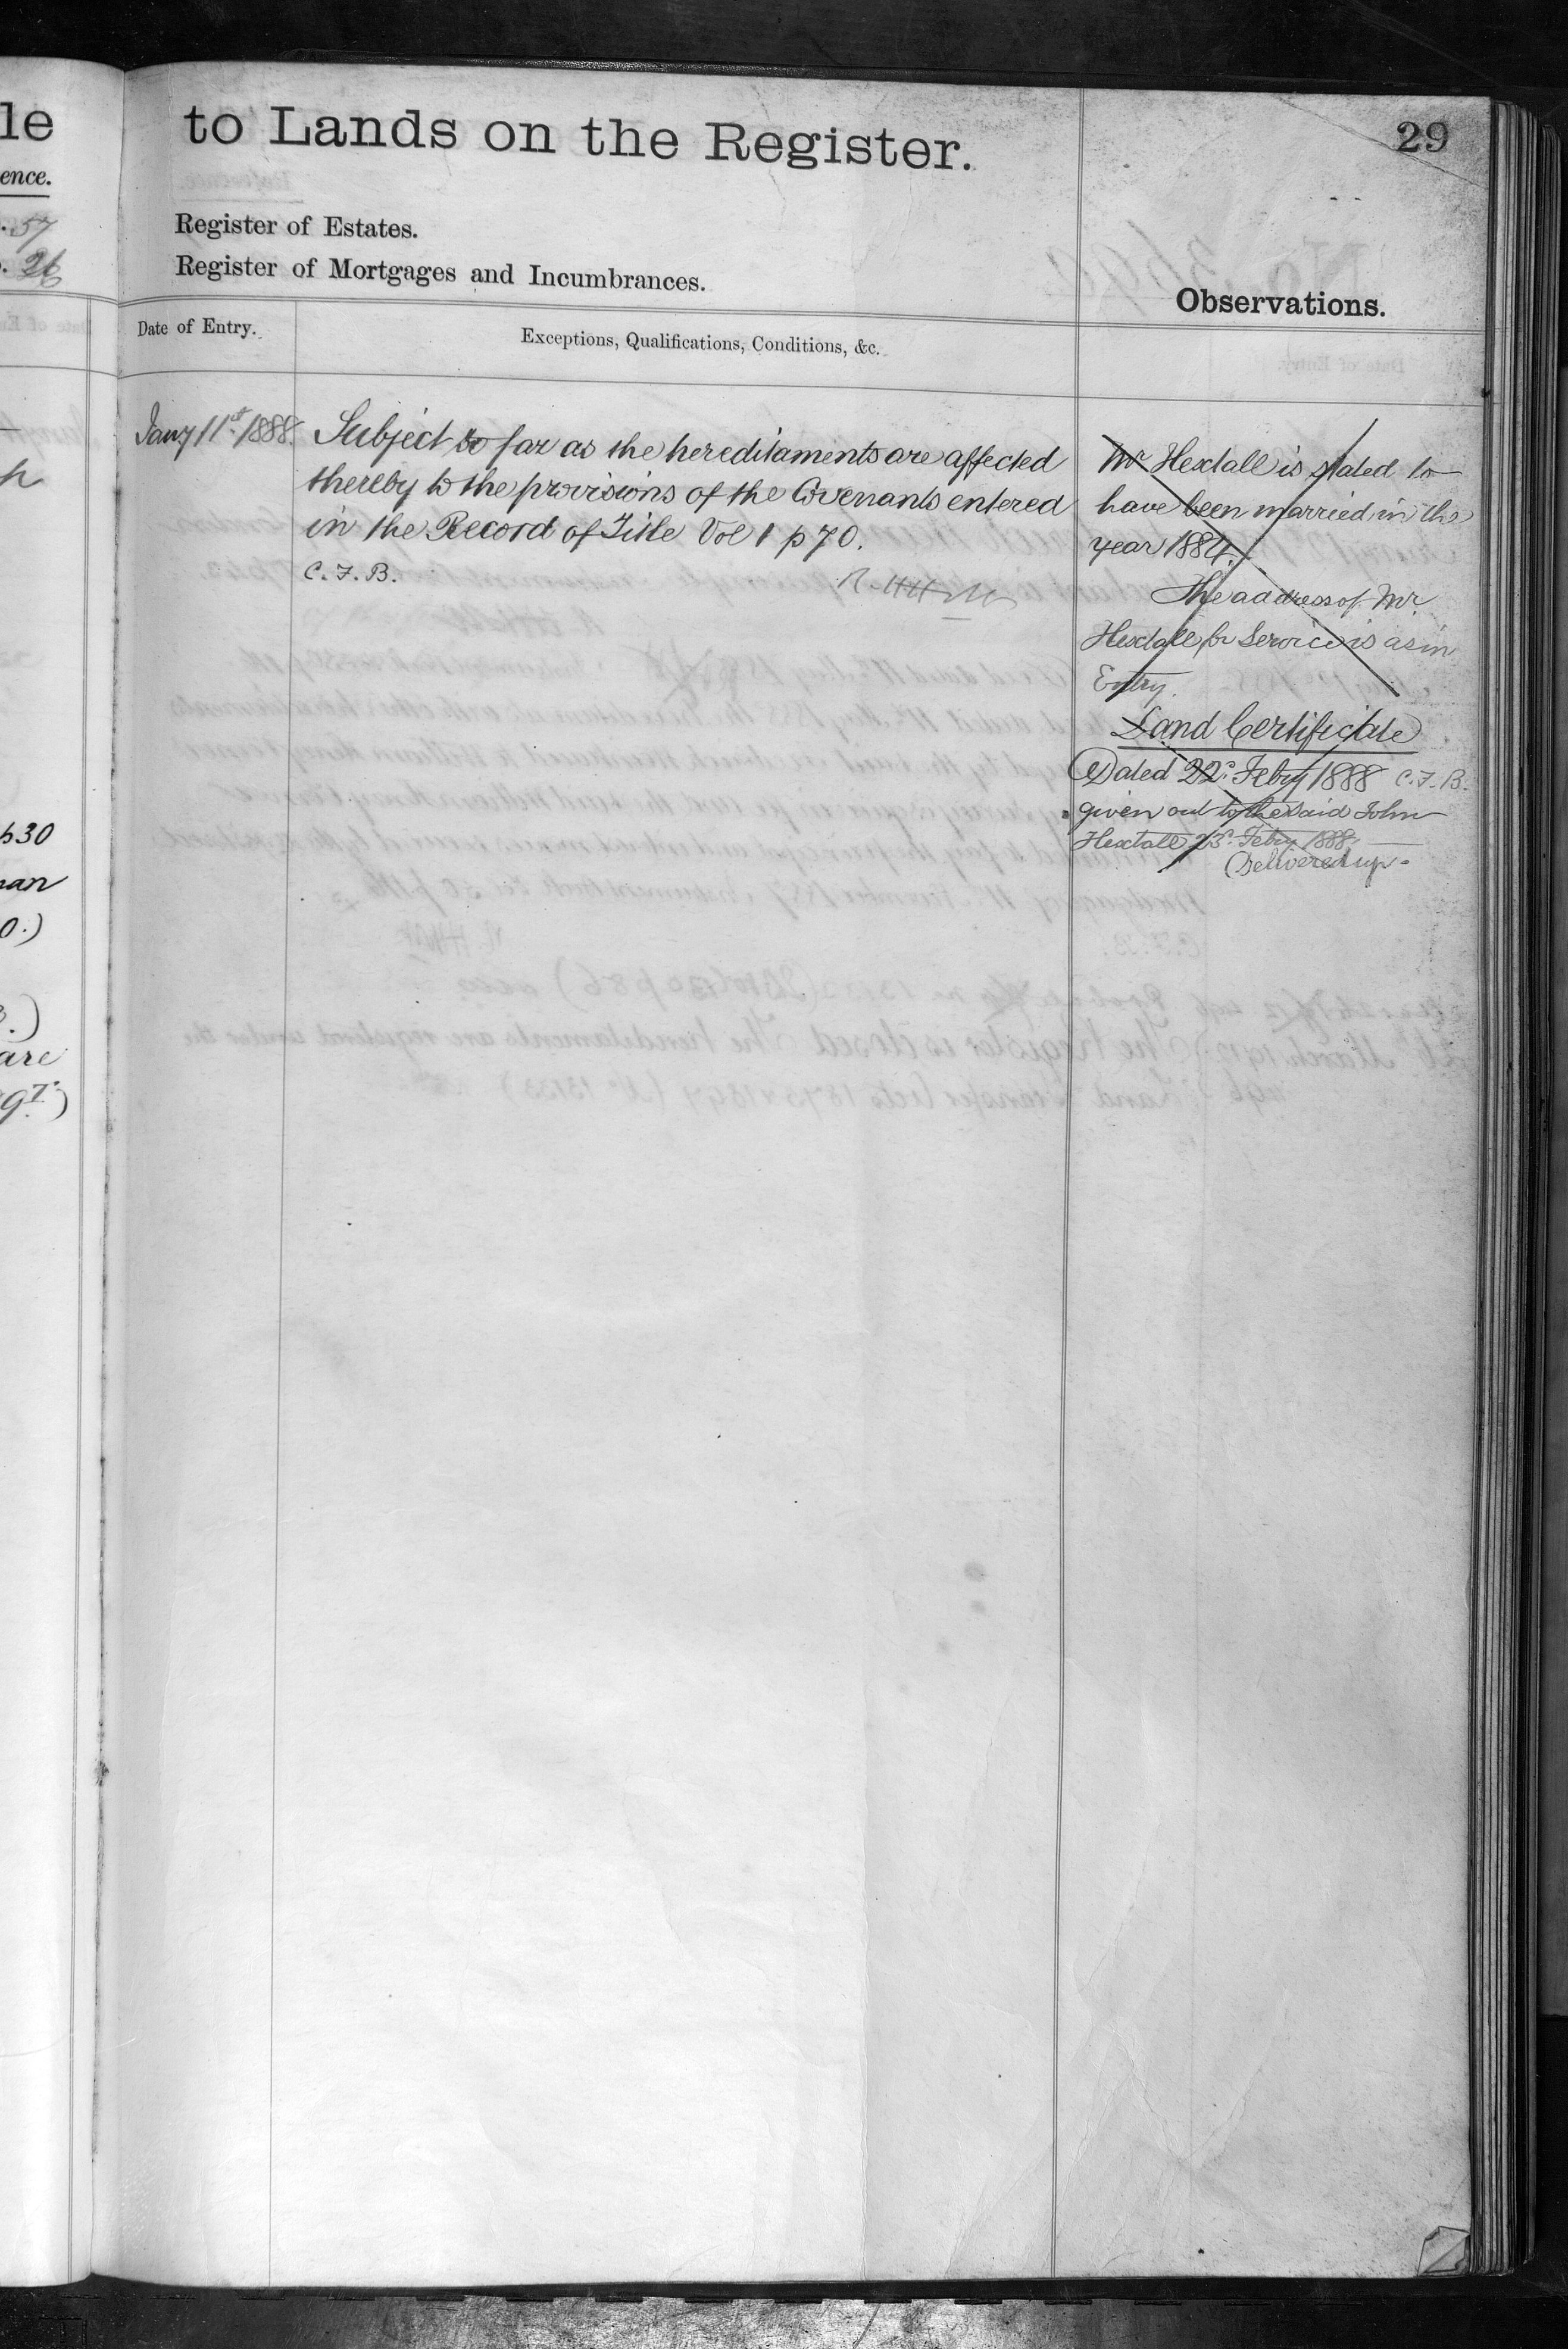 le
ence.
. 57
. 26
p30
man
0.)
3.)
are
to Lands on the Register.
29
Register of Estates.
Register of Mortgages and Incumbrances.
Observations.
Date of Entry.
Exceptions, Qualifications, Conditions, &c.
Jany 11th 1888.
Subject so far as the hereditaments are affected
thereby to the provisions of the Covenants entered
in the Record of Title Vol 1 p 70.
C.F.B.
Mr Hextall is stated to
have been married in the
year 1884.
The address of Mr
Hextall for Service is as in
Entry.
Land Certificate
Dated 22d Febry 1888 C.F.B.
given out to the said John
Hextall 23d Febry 1888
Delivered up.